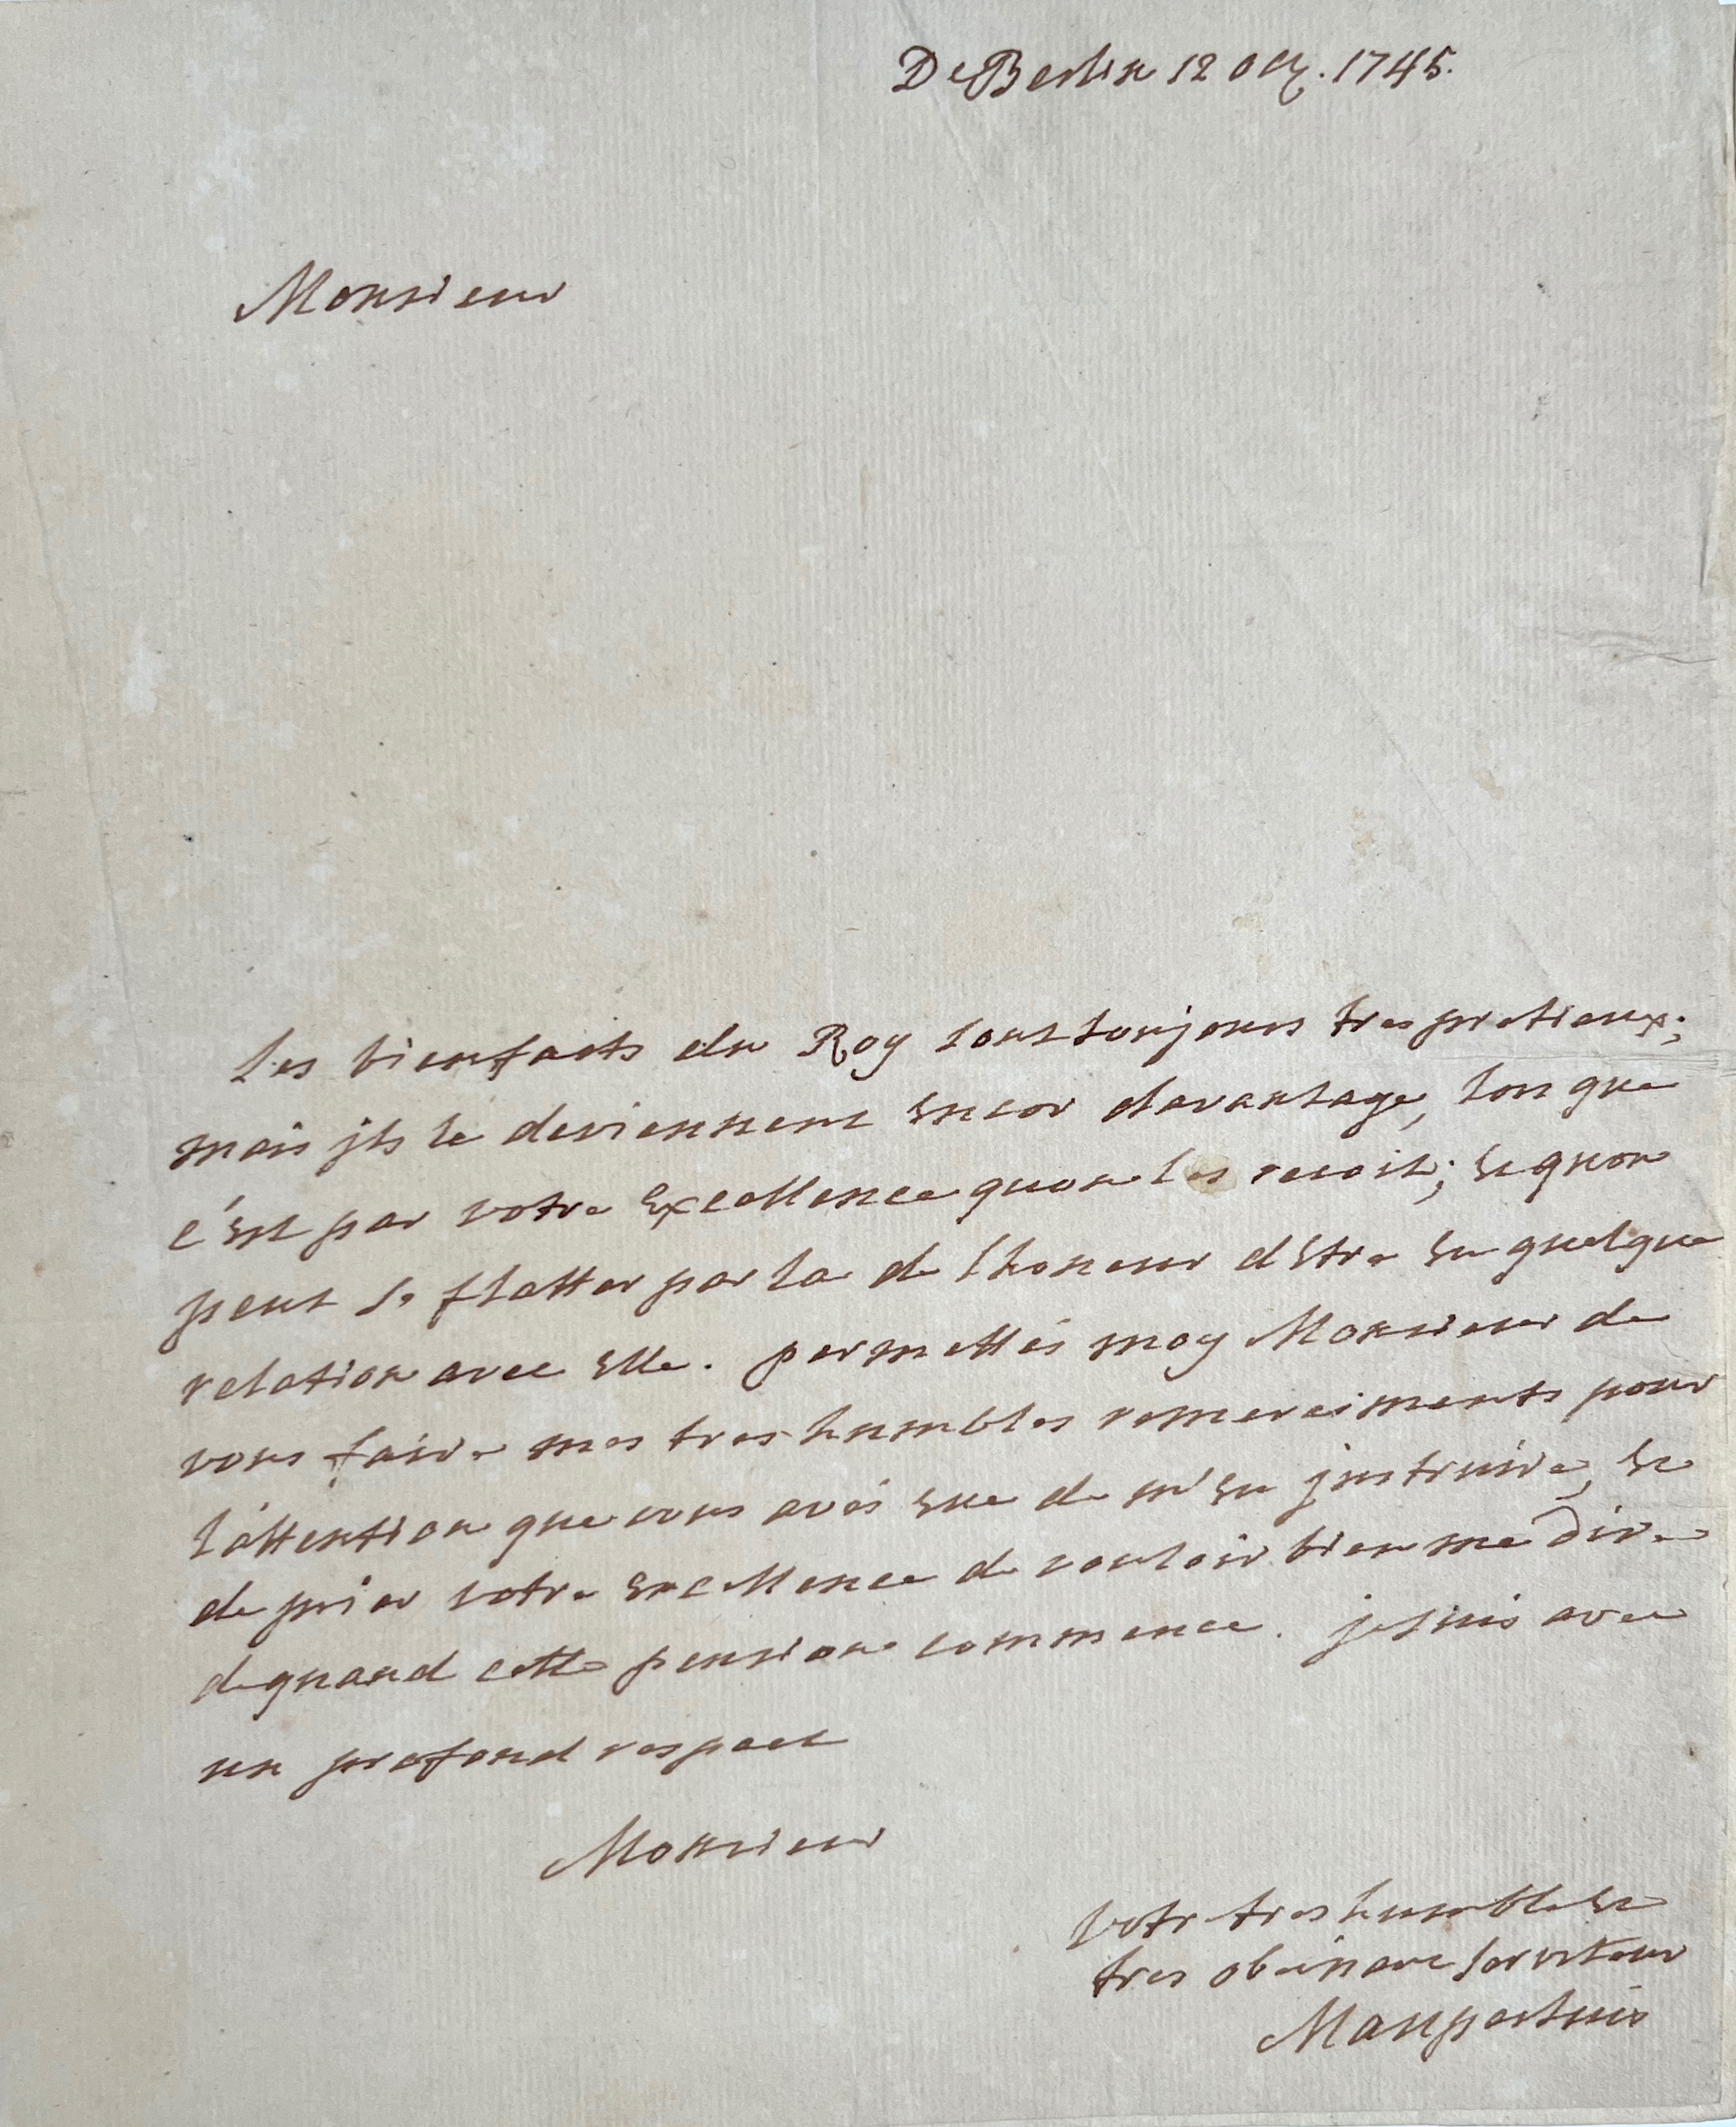 De Berlin 12 Oct. 1745.
Monsieur
Les bienfaits du Roy sont toujours tres pretieux;
mais jls le deviennent encor davantage, lors que
c'est par votre Excellence quon les recoit; et quon
peut se flatter par la de lhoneur detre en quelque
relation avec elle. permettés moy Monsieur de
vous faire mes tres humbles remerciments pour
l'attention que vous avés eue de m'en jnstruire, et
de prier votre excellence de vouloir bien me dire
de quand cette pension commence. je suis avec
un profond respect
Monsieur
votre tres humble et
tres obeissant serviteur
Maupertuis